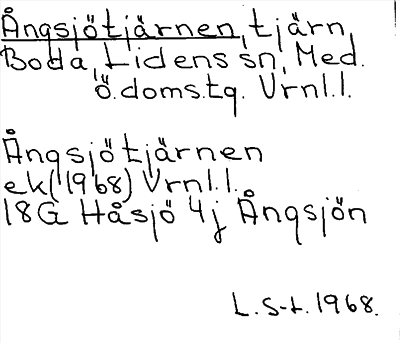 Ångsjötjärnen, tjärn,
Boda, Lidens sn, Med.
Ö. doms.tg. Vrnl.l.
Ångsjötjärnen
ek(1968) Vrnl.l.
18G Håsjö 4j Ångsjön
L. S-t. 1968.